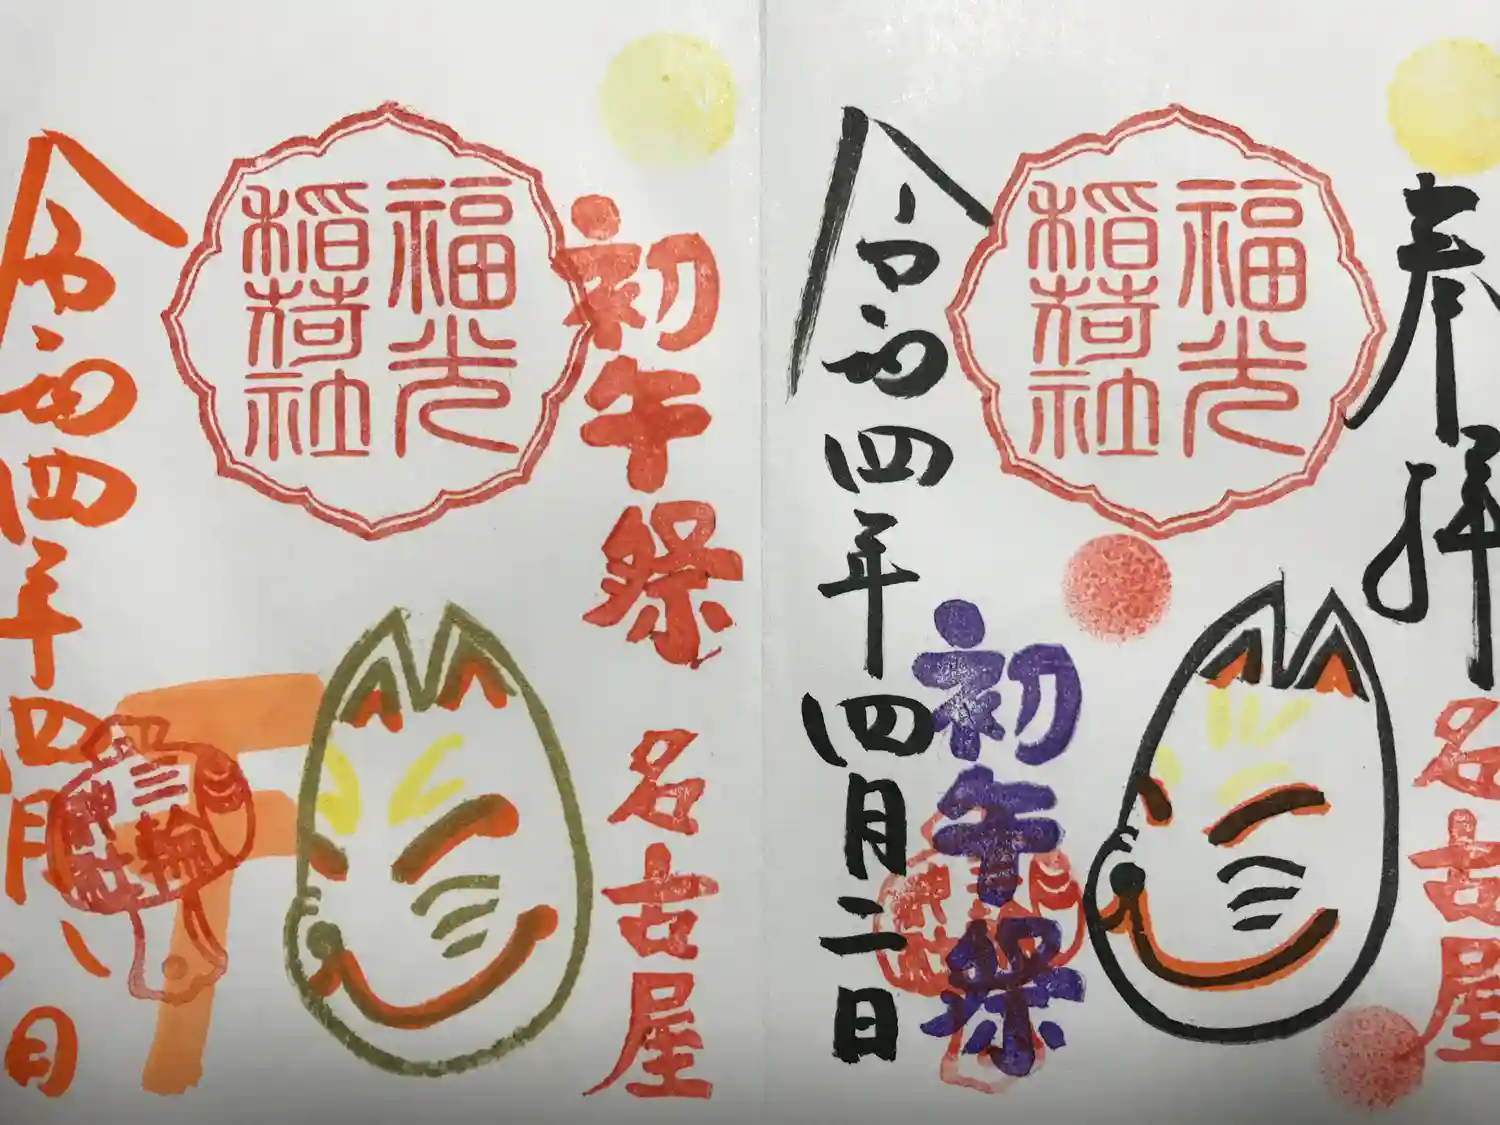 奉拝
名古屋
福光
稲荷社
初午祭
令和四年四月二日
初午祭
名古屋
福光
稲荷社
三輪
神社
令和四年四月 日